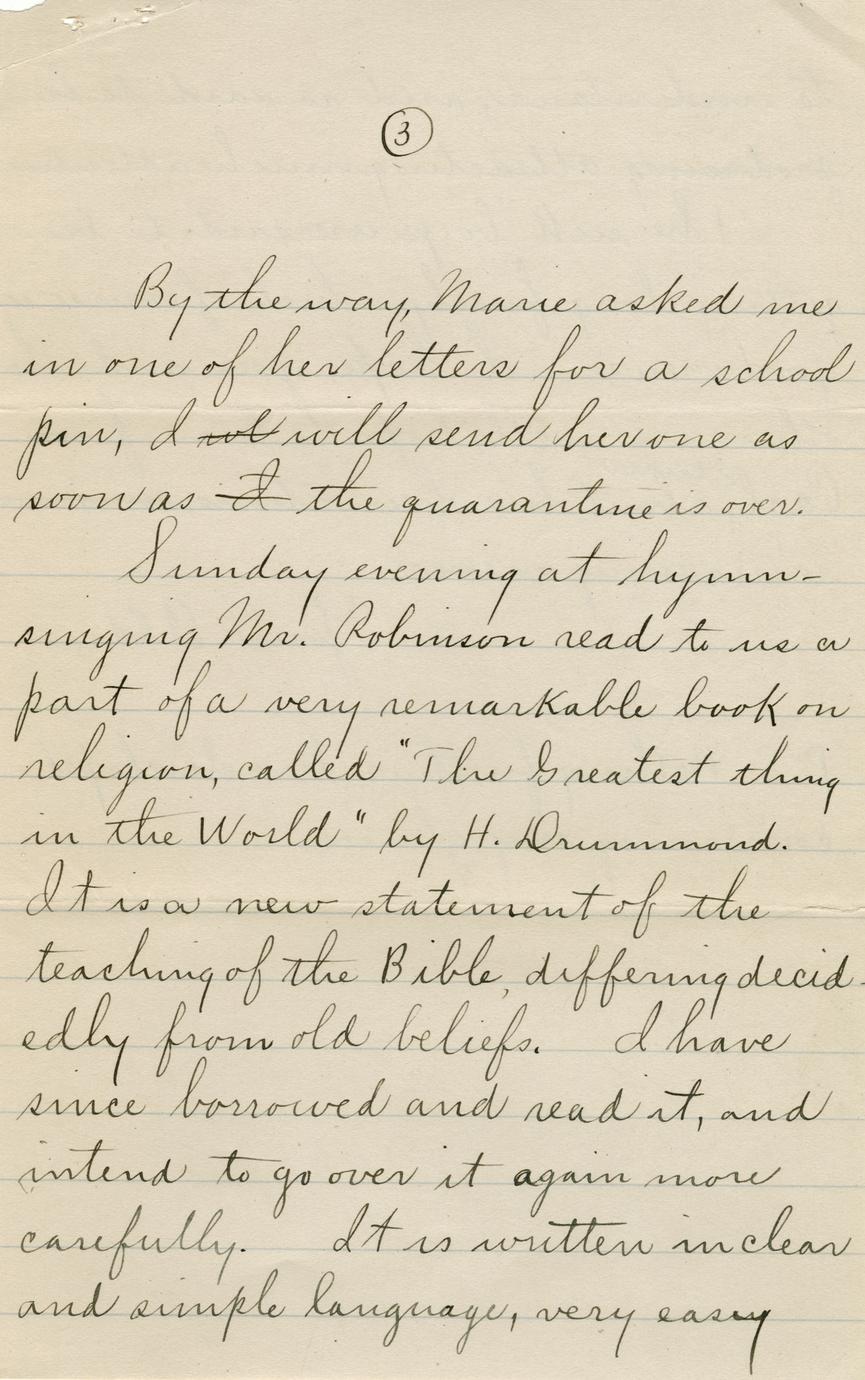 3
By the way, Marie asked me
in one of her letters for a school
pin, I wl will send her one as
soon as I the quarantine is over.
Sunday evening at hymn-
singing Mr. Robinson read to us a
part of a very remarkable book on
religion, called "The Greatest thing
in the World" by H. Drummond.
It is a new statement of the
teaching of the Bible, differing decid-
edly from old beliefs. I have
since borrowed and read it, and
intend to go over it again more
carefully. It is written in clear
and simple language, very easy